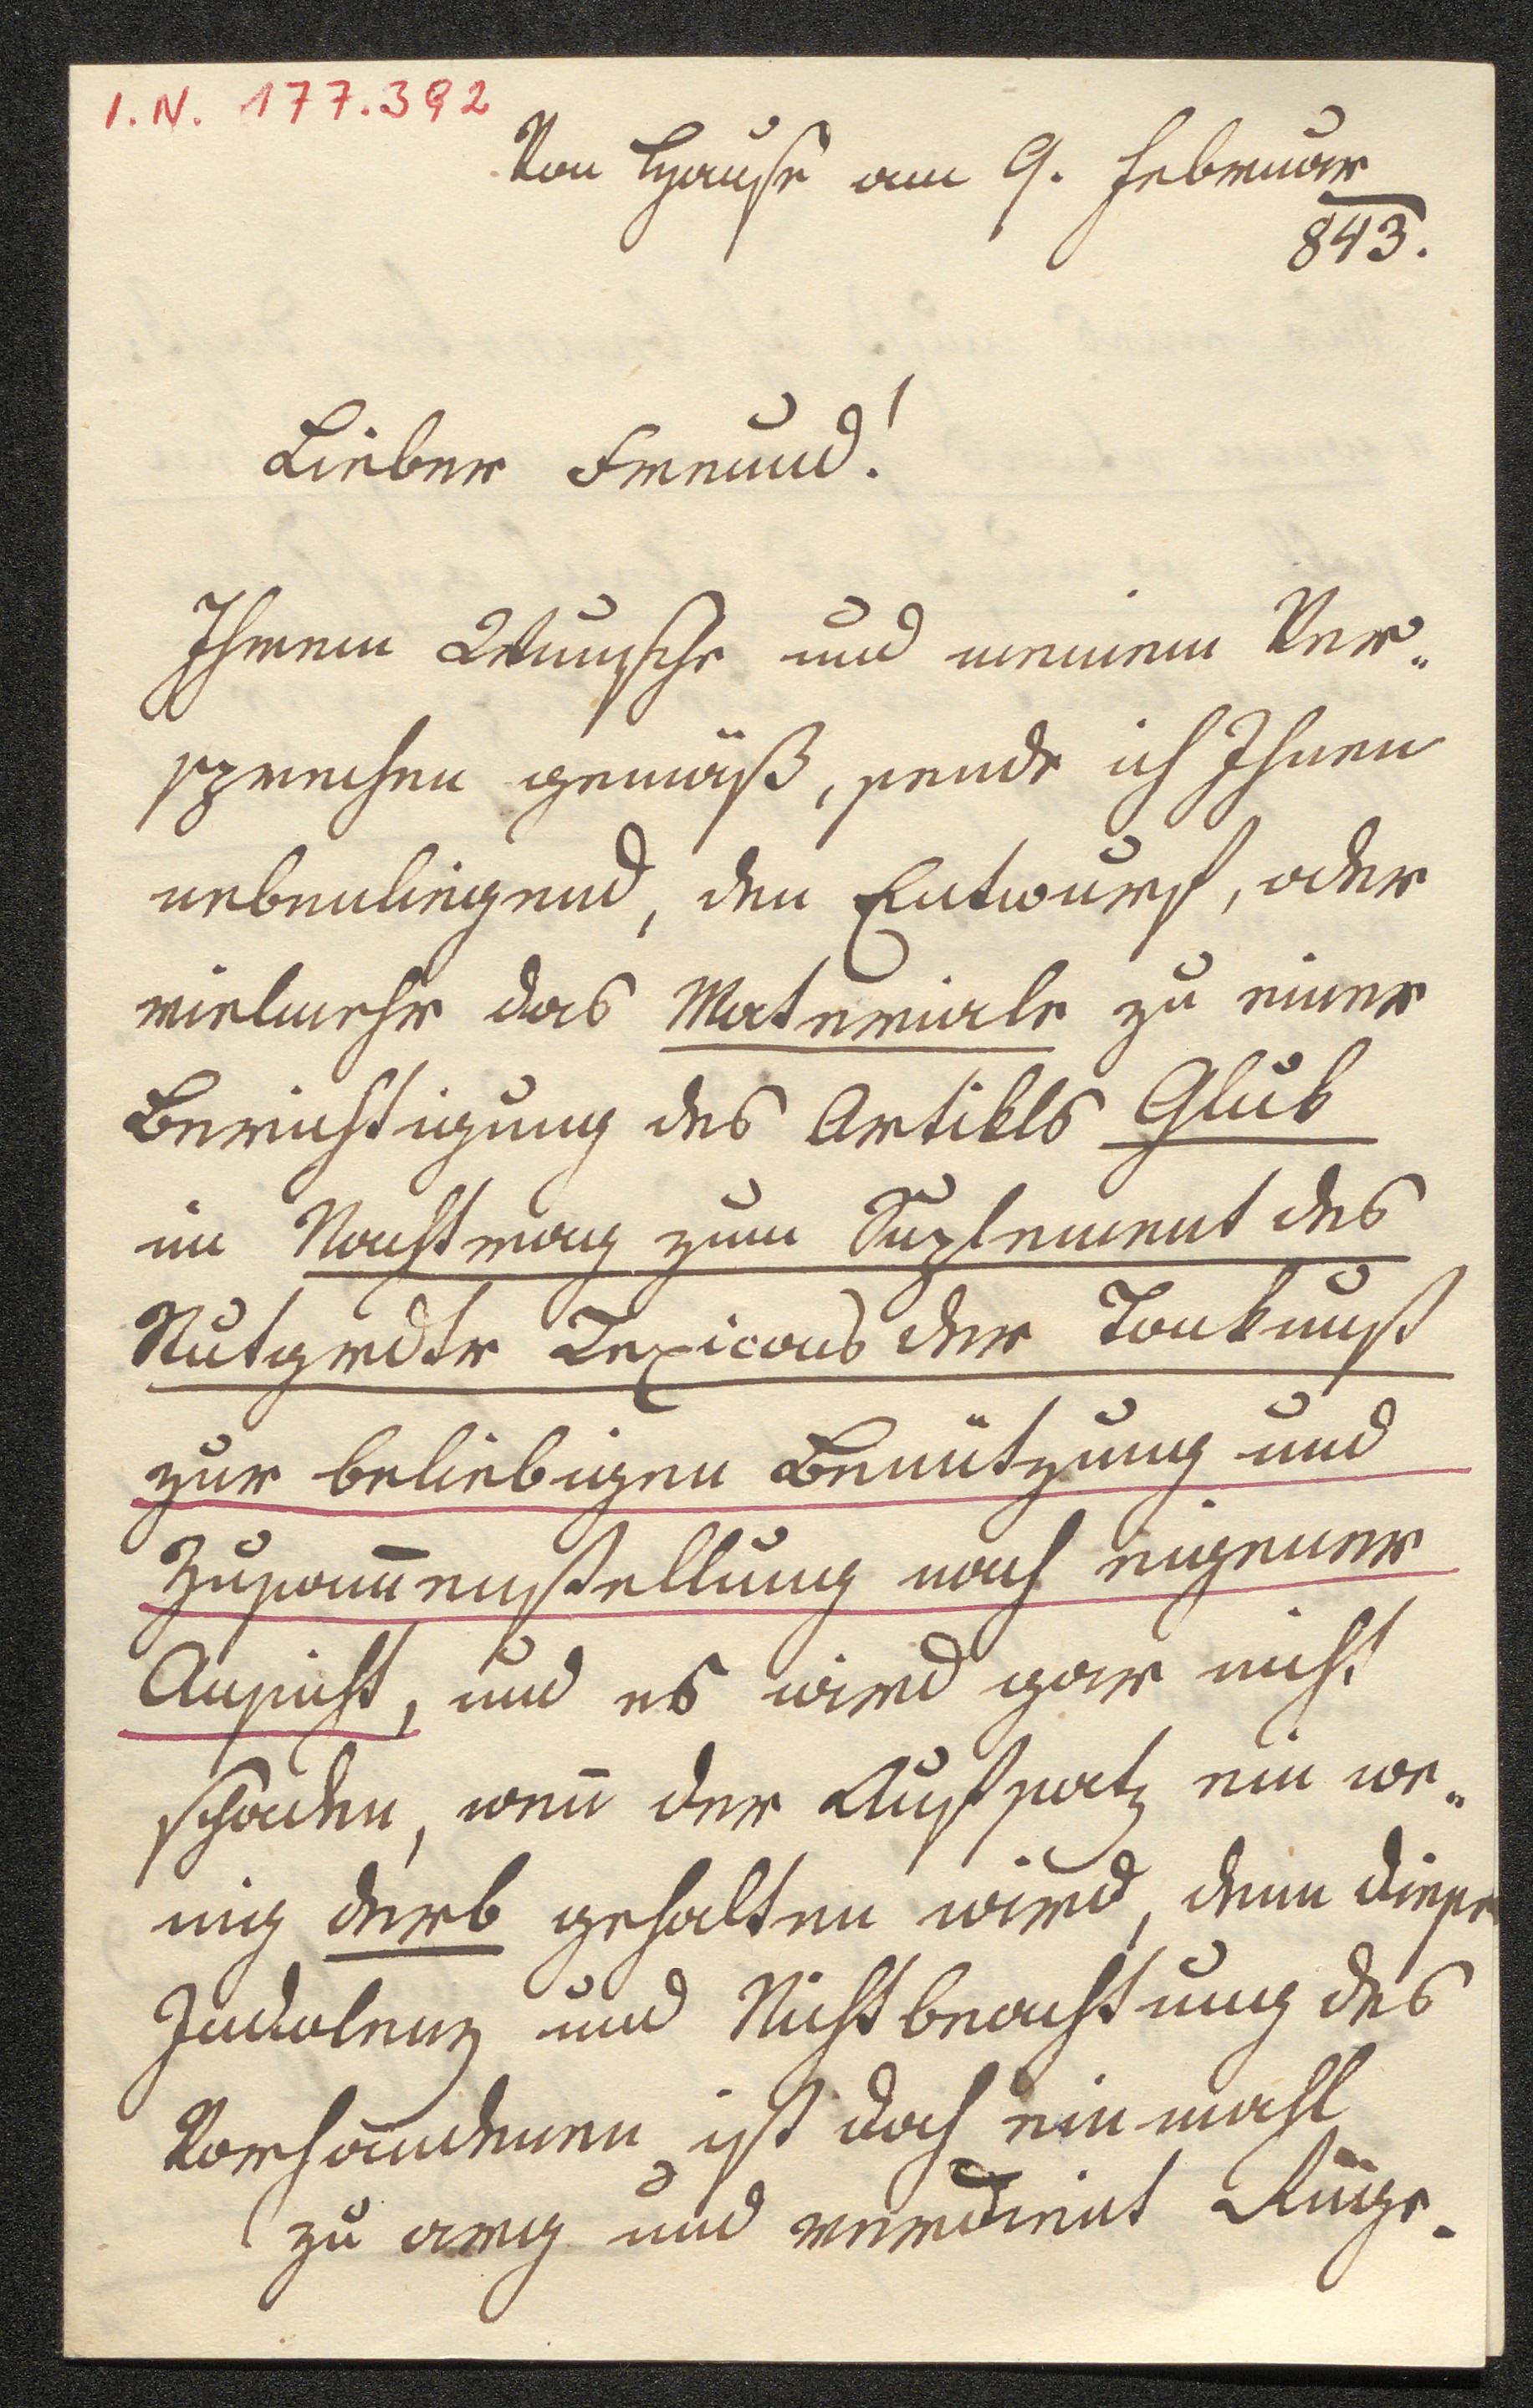 I.N. 177.392
Von Hause am 9. Februar
843.
Lieber Freund!
Ihrem Wunsche und meinem Ver„
sprechen gemäß, sende ich Ihnen
nebenliegend, den Entwurf, oder
vielmehr das Materiale zu einer
Berichtigung des Artikls Gluk
im Nachtrag zum Suplement des
Stutgrdtr Lexicons der Tonkunst
zur beliebigen Benützung und
Zusam̅enstellung nach eigener
Ansicht, und es wird gar nicht
schaden, wen̅ der Aufsatz ein we„
nig derb gehalten wird, denn diese
Indolenz und Nichtbeachtung des
Vorhandenen ist doch einmahl
zu arg und verdient Rüge.